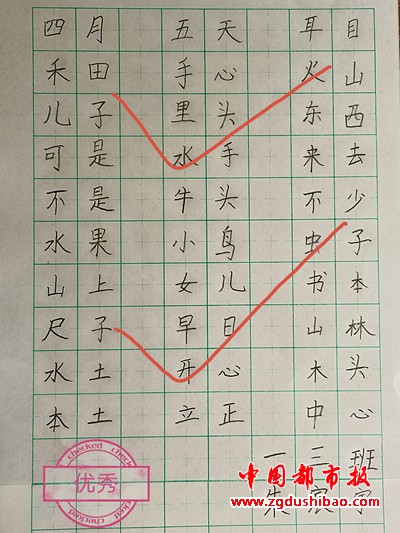 四月 五天 耳目
禾田 手心 火山
儿子 里头 东西
可是 水手 来去
不是 牛头 不少
水果 小鸟 虫子
山上 女儿 书本
尺子 早日 山林
水土 开心 木头
本土 立正 中心
一 三 班
checked
优秀
checked
中国都市报
www.zgdushibao.com